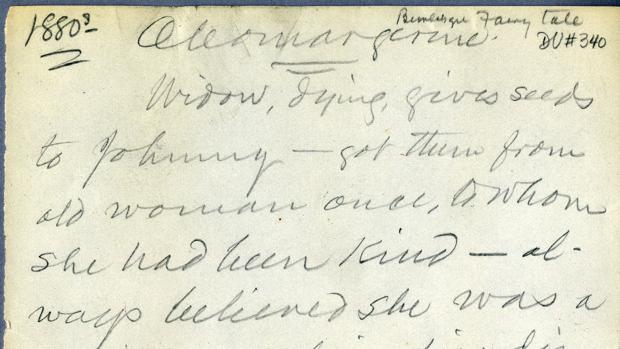 1880s
Burlesque Fairy tale
DV#340
Oleomargerine.
Widow, dying, gives seeds
to Johnny — got them from
old woman once, to whom
she had been kind — al-
ways believed she was a